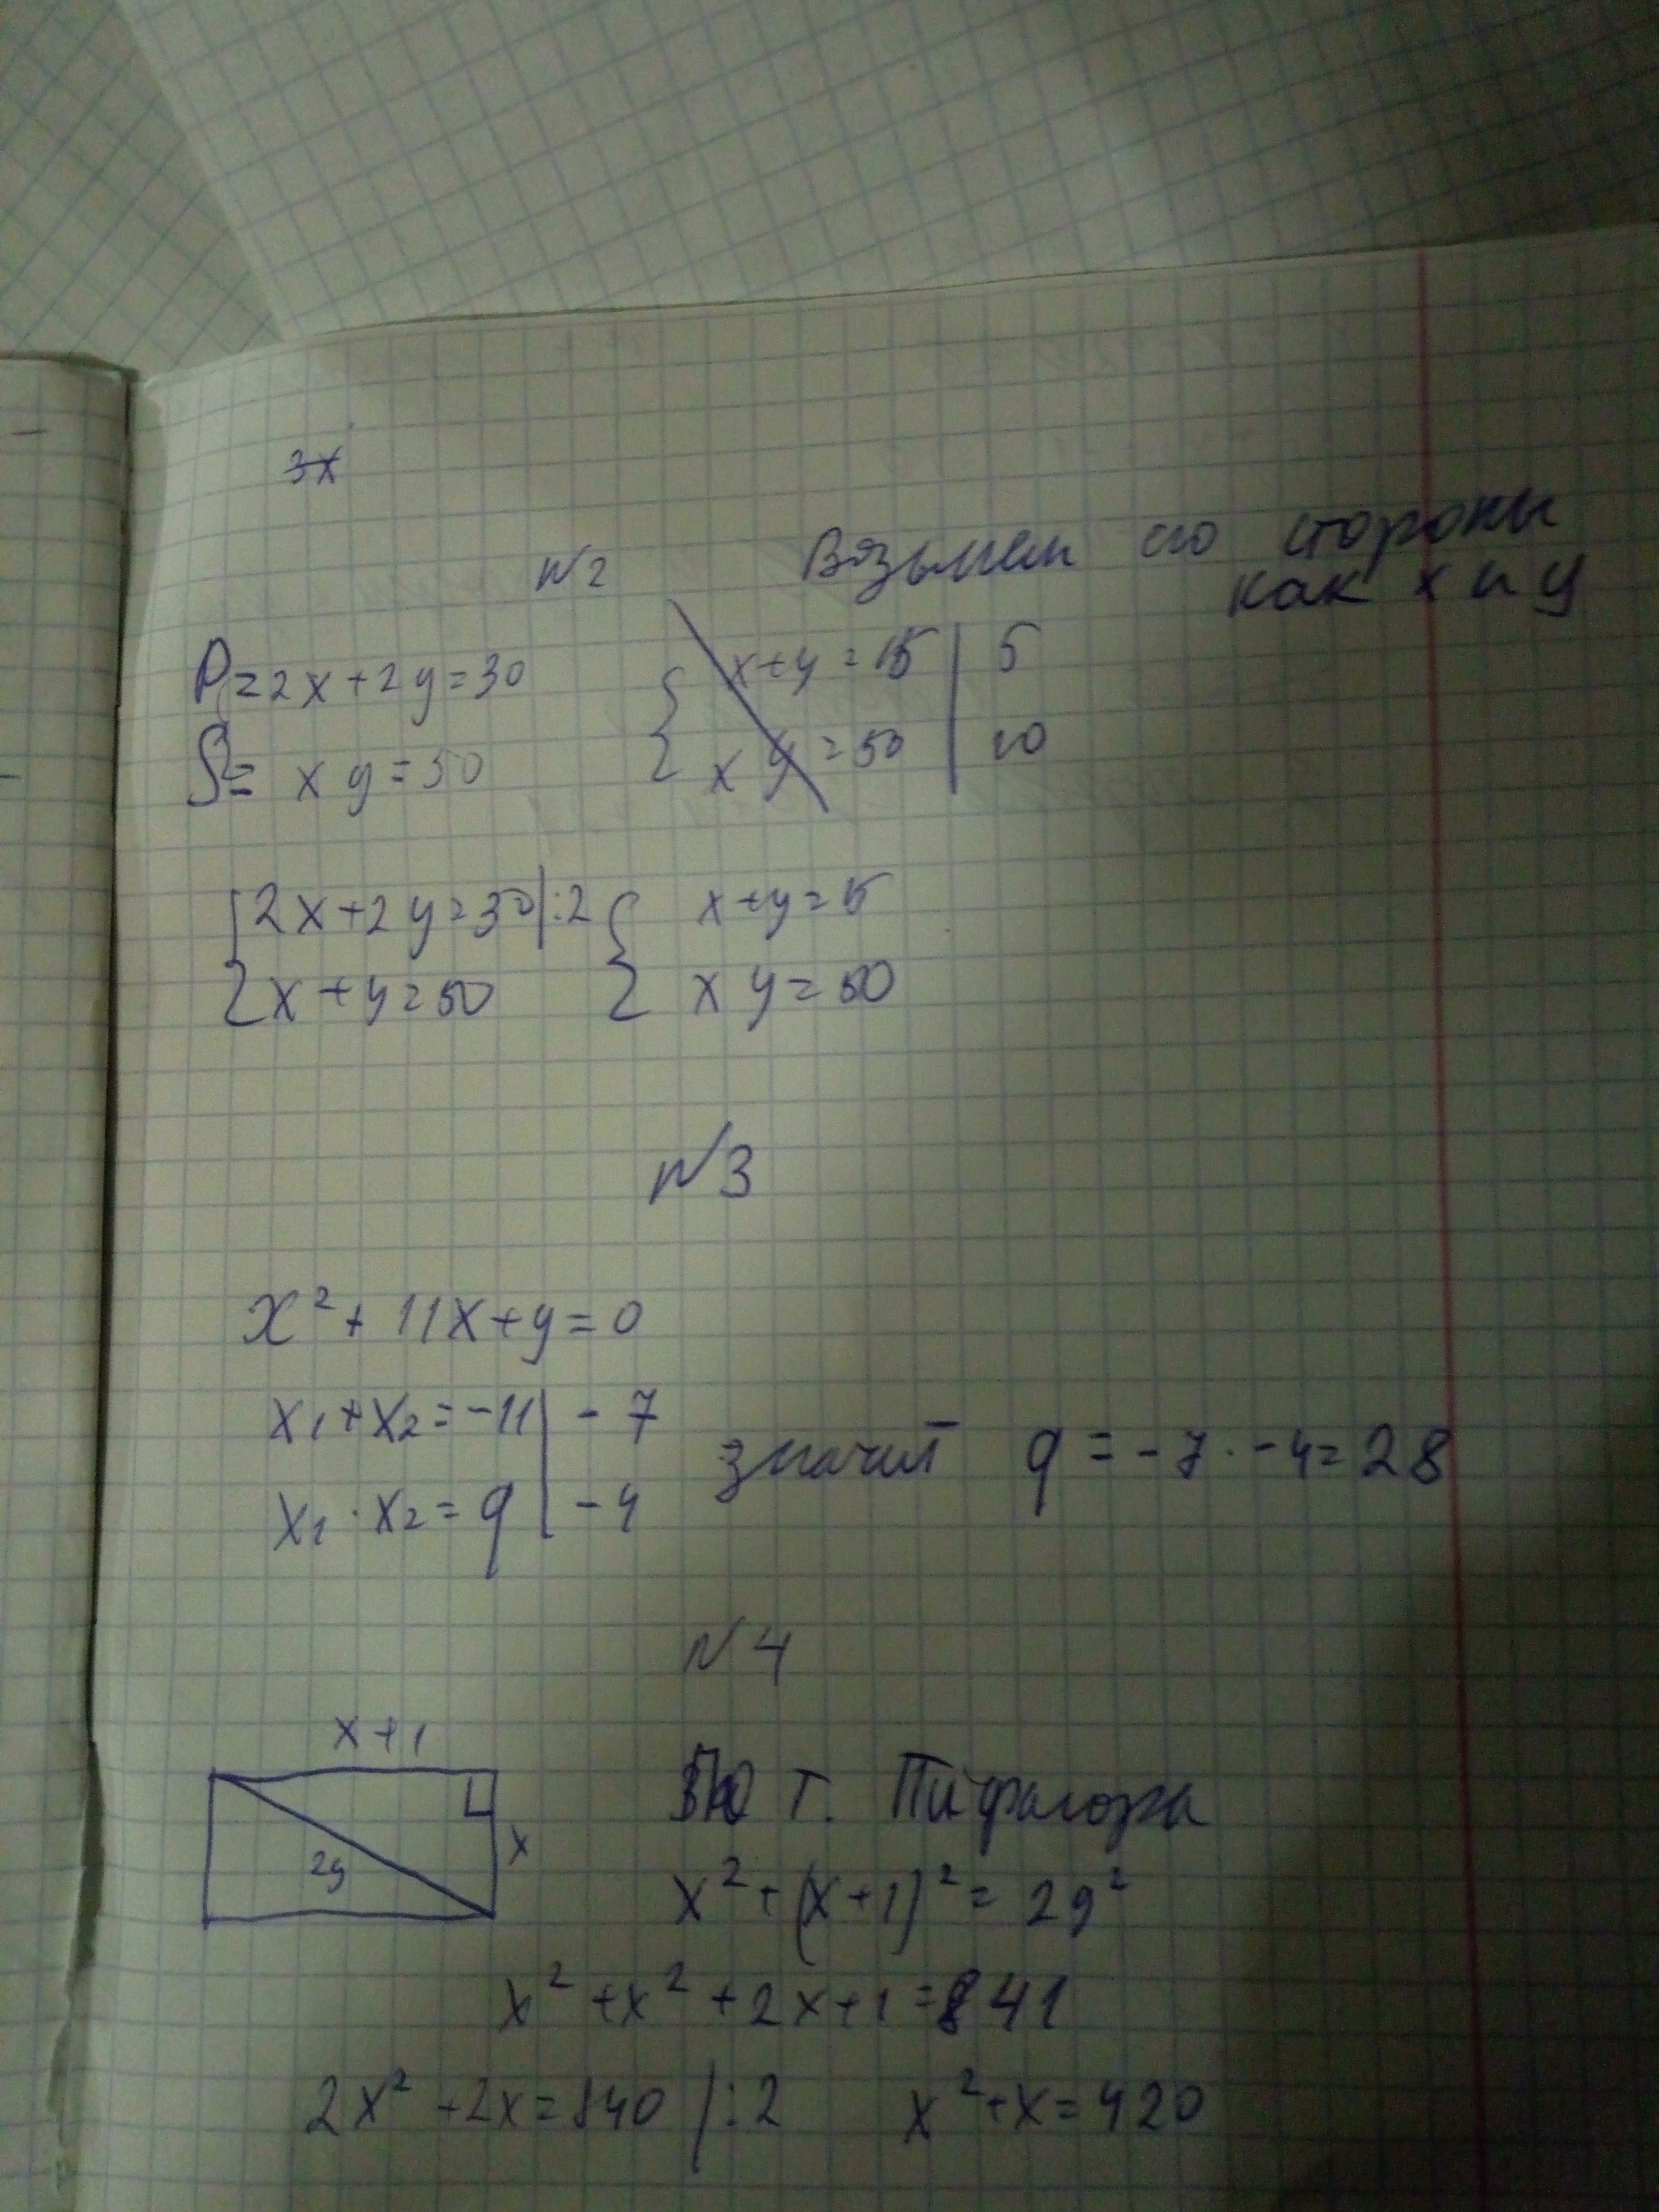 3x
N2
Возьмем его стороны
как x и y
P=2x+2y=30
S= xy=50
x+y=15 | 5
xy=50 | 10
2x+2y=30|:2
x+y=15
x+y=50
xy=50
N3
x²+11x+y=0
x₁+x₂=-11 | -7
x₁·x₂=q | -4
значит q=-7·-4=28
N4
x+1
x
29
По т. Пифагора
x²+(x+1)²=29²
x²+x²+2x+1=841
2x²+2x=840 |:2 x²+x=420